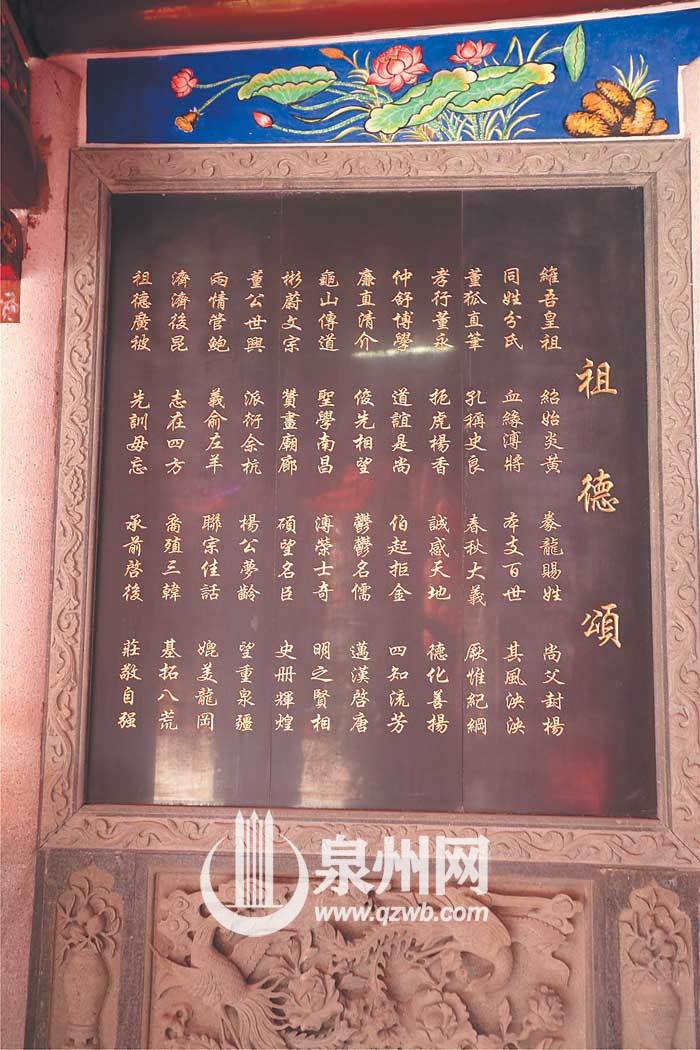 祖德頌
維吾皇祖 紹始炎黃 豢龍賜姓 尚父封楊
同姓分氏 血緣溥將 本支百世 其風泱泱
董狐直筆 孔稱史良 春秋大義 厥惟紀綱
孝行董永 扼虎楊香 誠感天地 德化善揚
仲舒博學 道誼是尚 伯起拒金 四知流芳
廉直清介 後先相望 鬱鬱名儒 邁漢啓唐
龜山傳道 聖學南昌 溥榮士奇 明之賢相
彬蔚文宗 贊畫廟廊 碩望名臣 史册輝煌
董公世興 派衍余杭 楊公夢齡 望重泉疆
兩情管鮑 義俞左羊 聯宗佳話 媲美龍岡
濟濟後昆 志在四方 裔殖三韓 基拓八荒
祖德廣被 先訓毋忘 承前啓後 莊敬自强
泉州网
www.qzwb.com